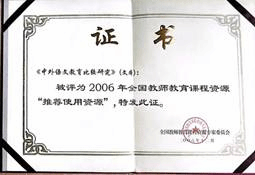 证书
《中外语文教育比较研究》(文库):
被评为 2006 年全国教师教育课程资源
“推荐使用资源”,特发此证。
全国教师教育课程资源专家委员会